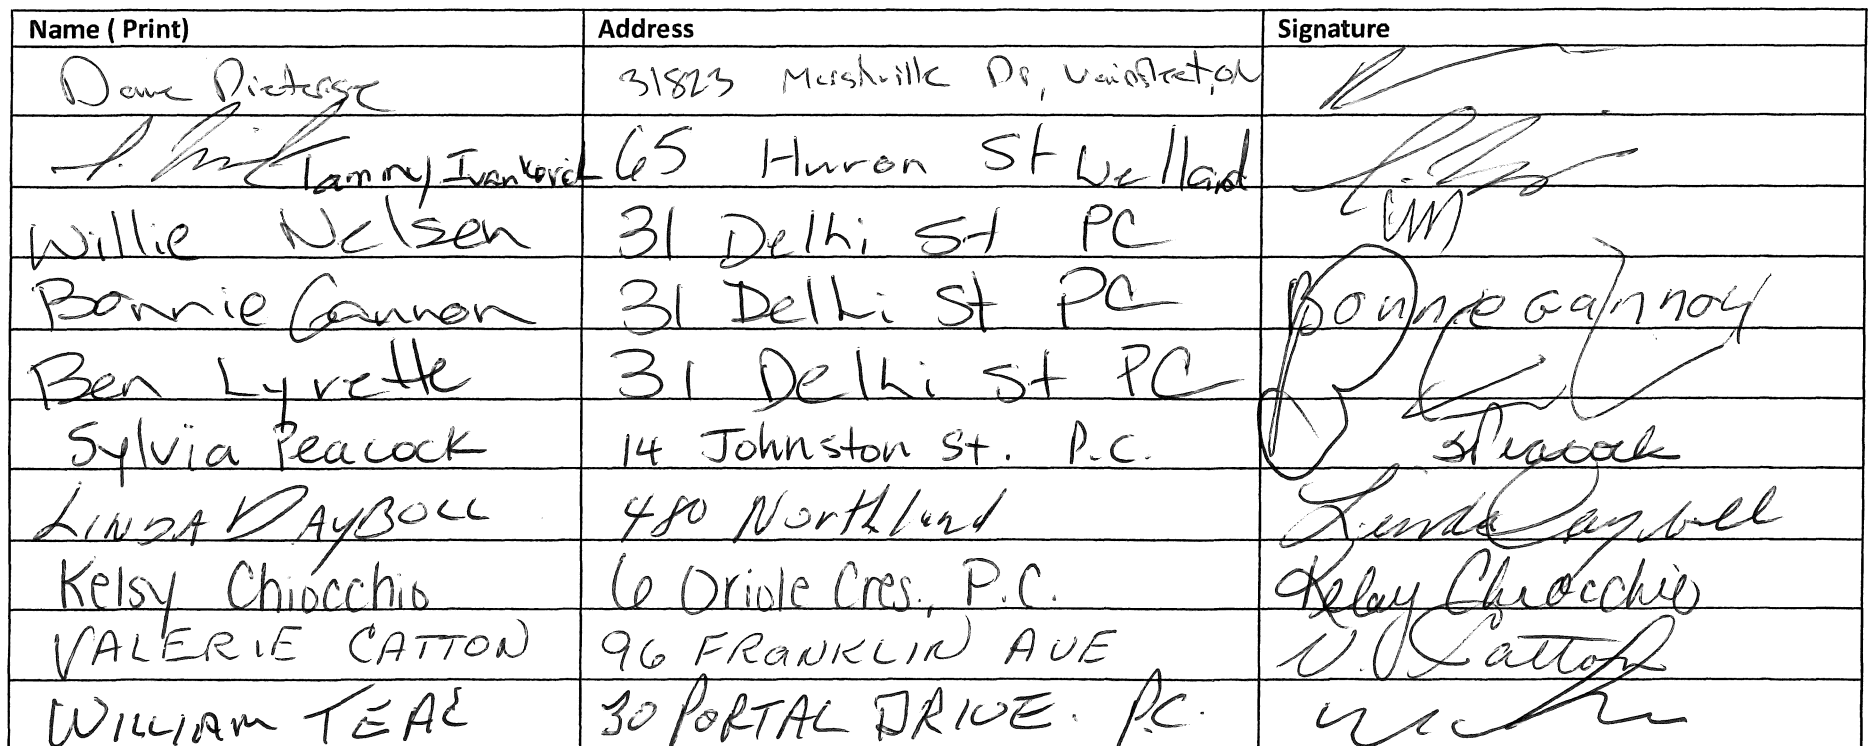 Name ( Print) Address Signature
Dave Dieterse 31823 Marshville Dr, Wainfleet, ON
Tammy Ivankovich 65 Huron St Welland
Willie Nelsen 31 Delhi St PC WN
Bonnie Gannon 31 Delhi St PC Bonnie Gannon
Ben Lyrette 31 Delhi St PC
Sylvia Peacock 14 Johnston St. P.C. S Peacock
LINDA DAYBOLL 480 Northland Linda Dayboll
Kelsy Chiocchio 6 Oriole Cres., P.C. Kelsy Chiocchio
VALERIE CATTON 96 FRANKLIN AVE V. Catton
WILLIAM TEAL 30 PORTAL DRIVE. P.C.